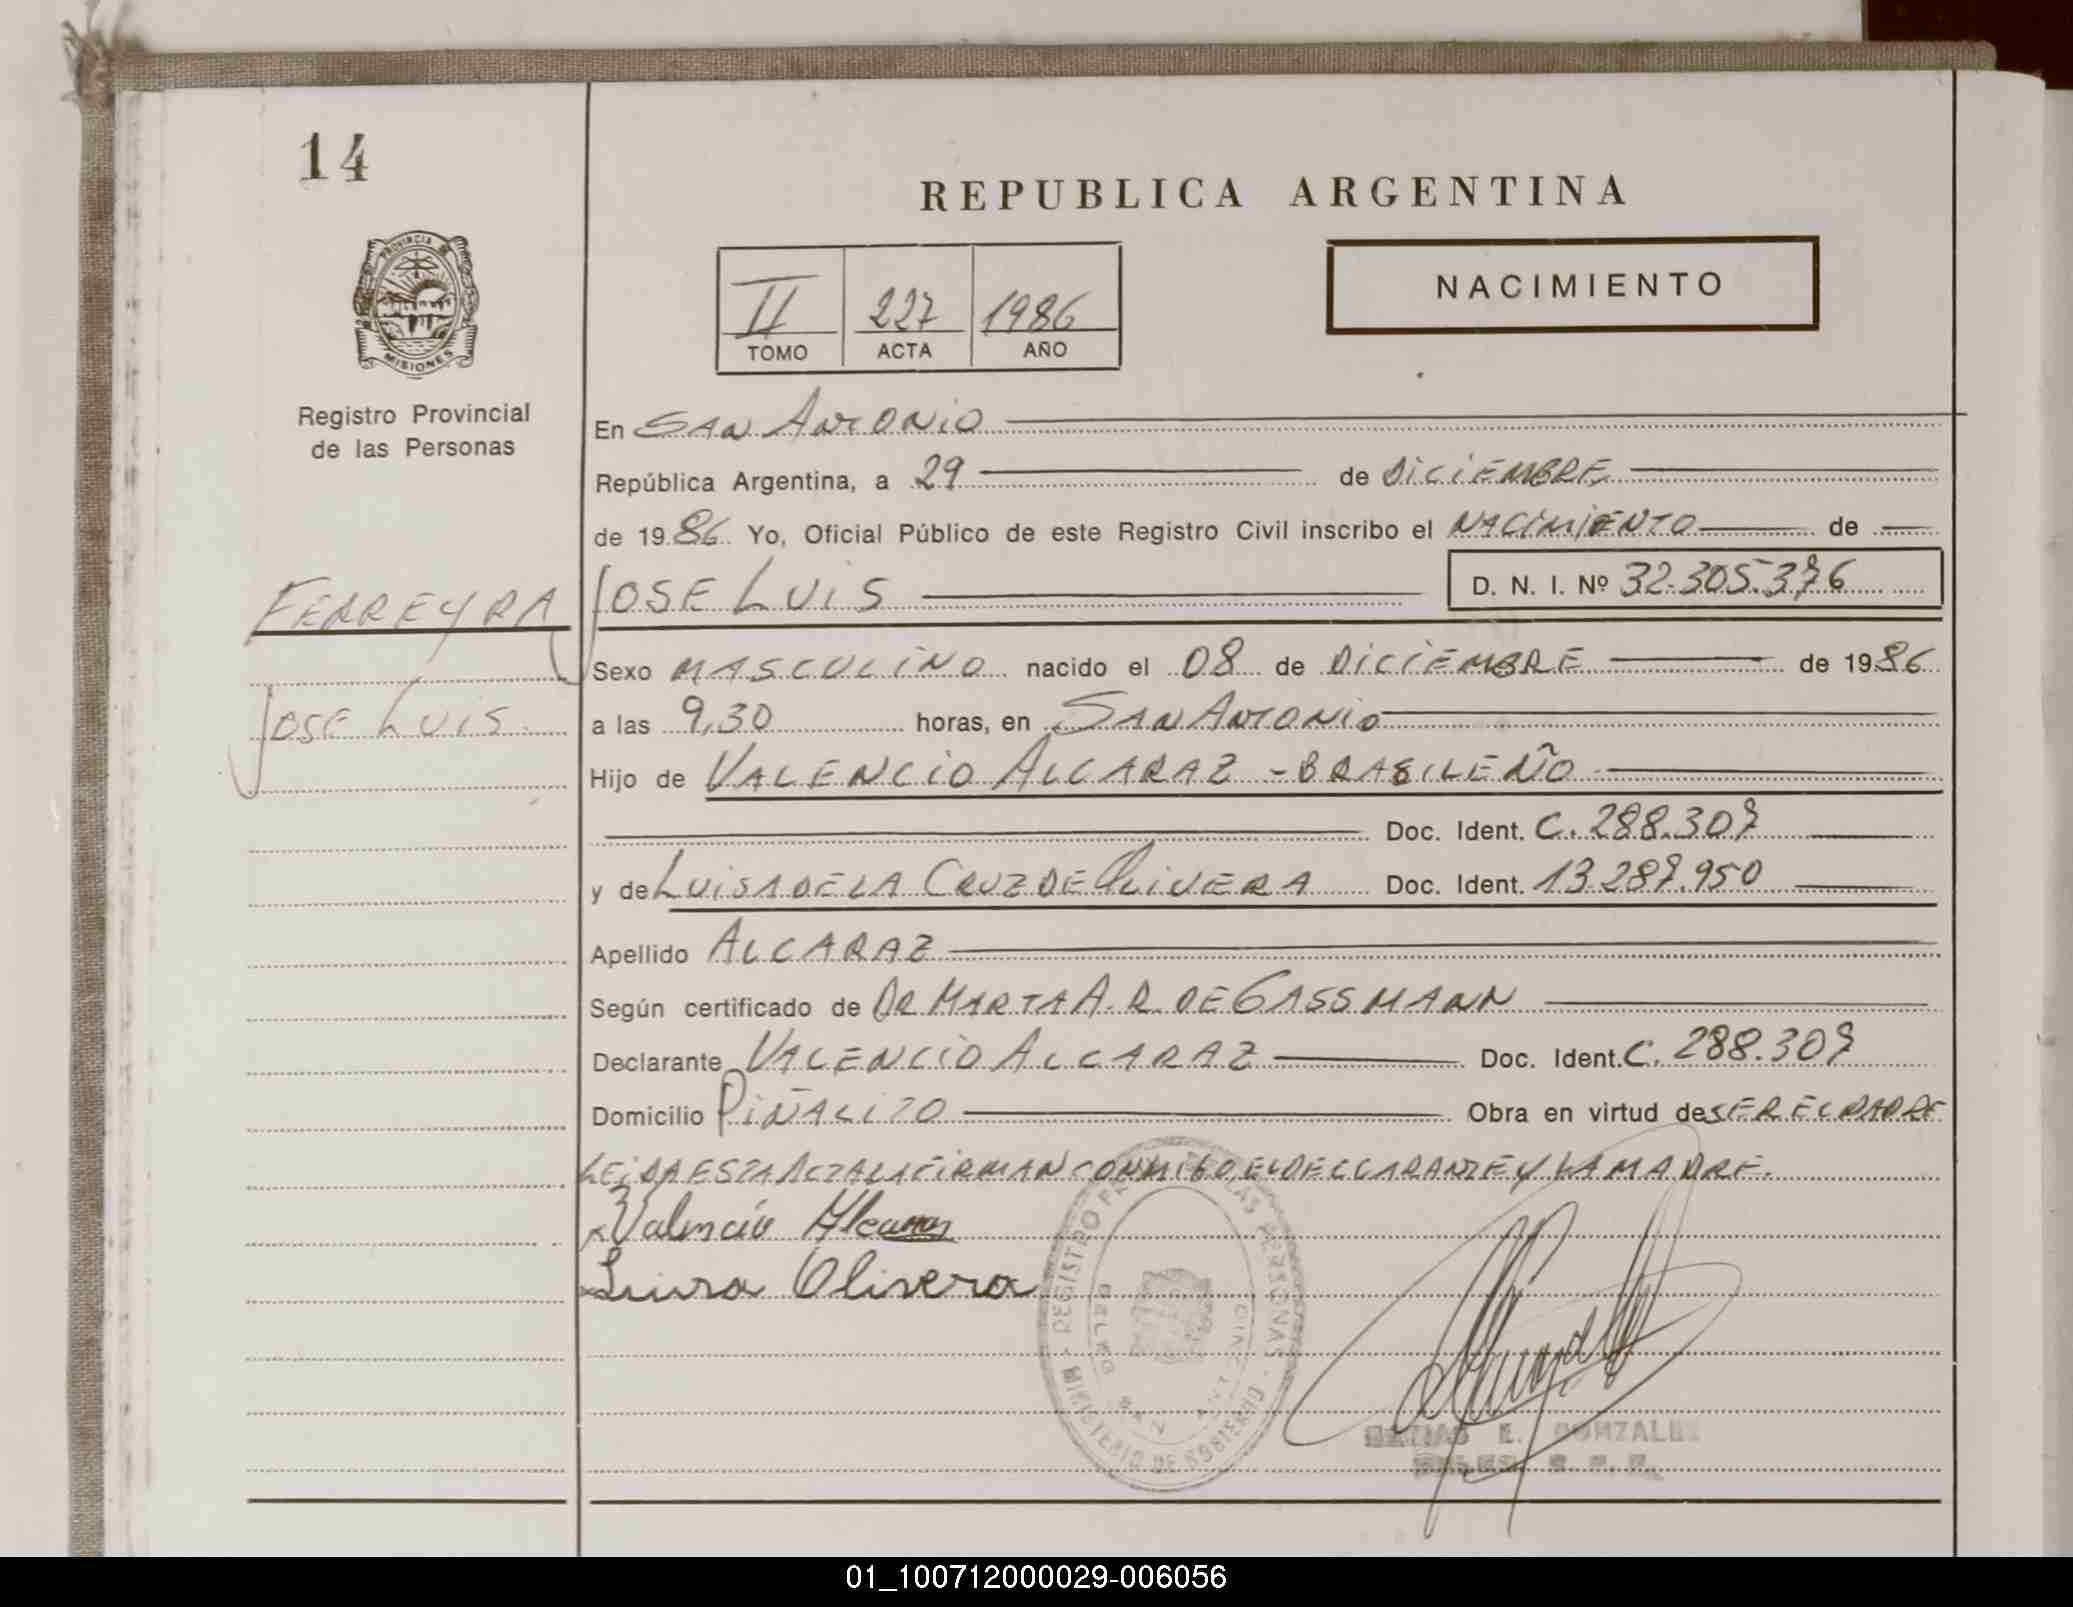 14
REPUBLICA ARGENTINA
NACIMIENTO
II 227 1986
TOMO ACTA AÑO
PROVINCIA DE MISIONES
Registro Provincial
de las Personas
En SAN ANTONIO
República Argentina, a 29 de DICIEMBRE
de 1986 Yo, Oficial Público de este Registro Civil inscribo el NACIMIENTO de
FERREYRA
JOSE LUIS
JOSE LUIS D. N. I. Nº 32.305.376
Sexo MASCULINO nacido el 08 de DICIEMBRE de 1986
a las 9,30 horas, en SAN ANTONIO
Hijo de VALENCIO ALCARAZ - BRASILEÑO
Doc. Ident. C. 288.307
y de LUISA DE LA CRUZ DE OLIVERA Doc. Ident. 13.287.950
Apellido ALCARAZ
Según certificado de DR MARTA A. R. DE GASSMANN
Declarante VALENCIO ALCARAZ Doc. Ident. C. 288.307
Domicilio PIÑALITO Obra en virtud de SER EL PADRE
LEIDA ESTA ACTA LA FIRMAN CONMIGO, EL DECLARANTE Y LA MADRE.
x Valencio
x Luisa Olivera
REGISTRO PERSONAS
MINISTERIO DE GOBIERNO
E. GONZALEZ
01_100712000029-006056